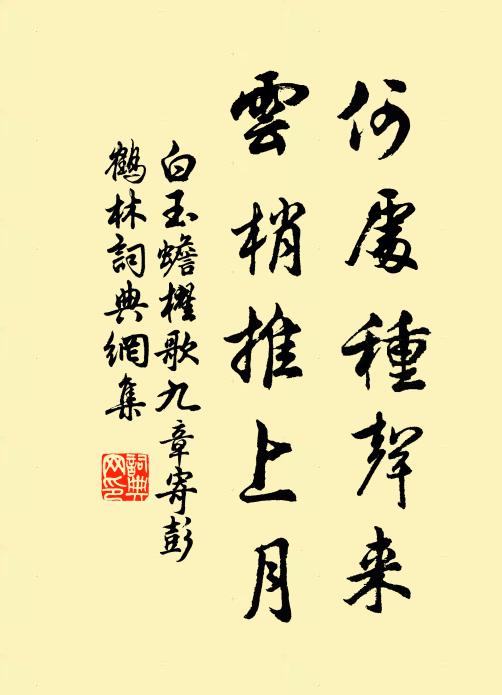 何處種聲来
雲梢推上月
白玉蟾櫂歌九章寄彭
鶴林詞典網集
詞典
网印